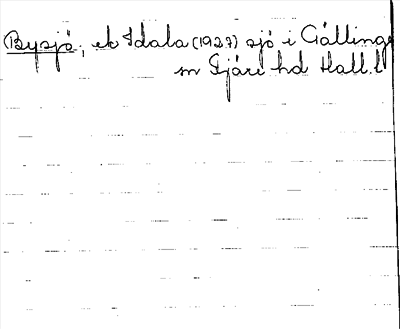 Bysjö, ek Idala (1927) sjö i Gällinge
sn Fjäre hd Hall.l